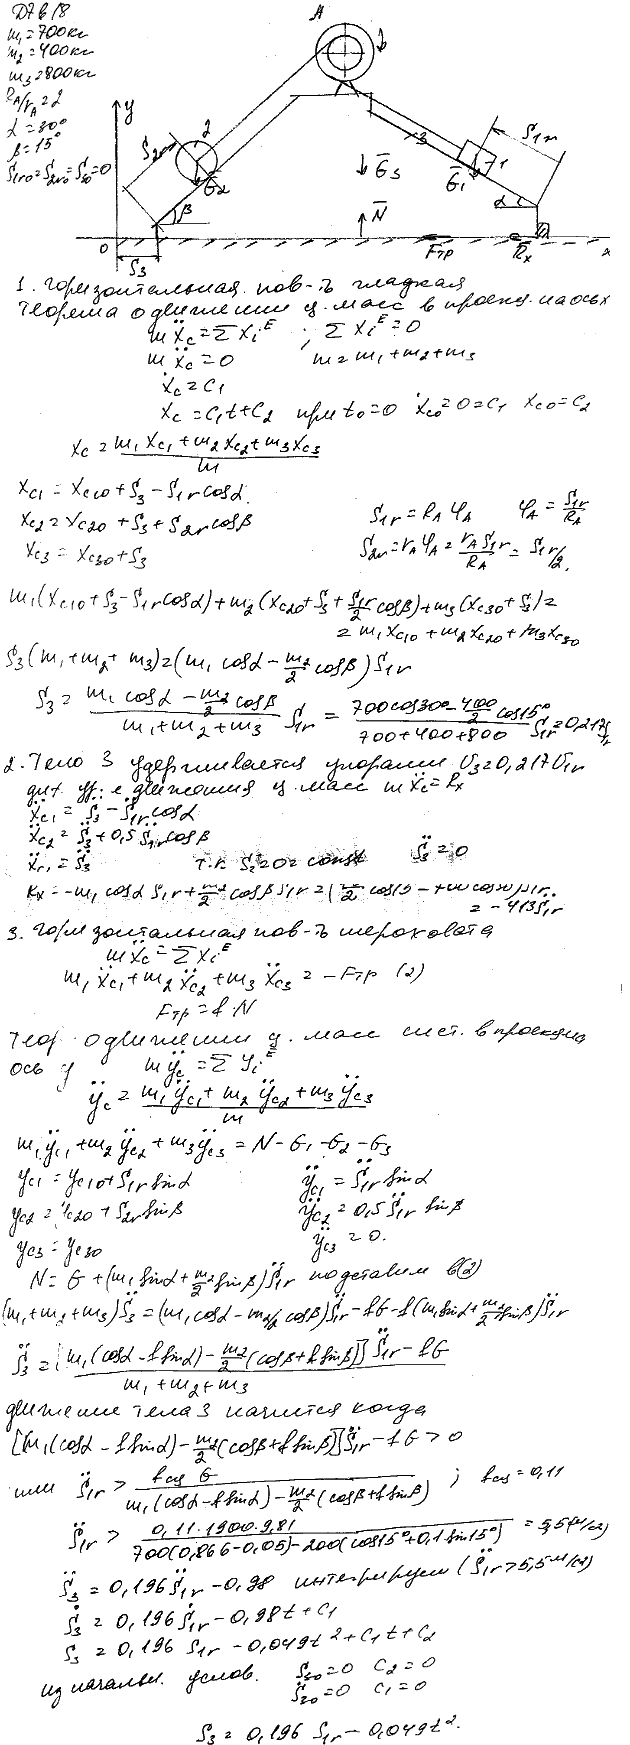 Д7 в 18
m₁=700кг
m₂=400кг
m₃=800кг
R_A/r_A=2
α=30°
β=15°
S₁r₀=S₂r₀=S₃₀=0
A
y
S₂r
2
Ḡ₂
β
3
Ḡ₃
S₁r
1
Ḡ₁
α
N̄
0
S₃
Fтр
R̄x
x
1. горизонтальная пов-ть гладкая
Теорема о движении ц. масс в проекц. на ось x
mẍc=ΣXᵢᴱ ; ΣXᵢᴱ=0
mẍc=0 m=m₁+m₂+m₃
ẋc=C₁
xc=C₁t+C₂ при t₀=0 ẋc₀=0=C₁ xc₀=C₂
xc=(m₁xc₁+m₂xc₂+m₃xc₃)/m
xc₁=xc₁₀+S₃-S₁r cosα.
xc₂=xc₂₀+S₃+S₂r cosβ
xc₃=xc₃₀+S₃
S₁r=R_Aφ_A φ_A=S₁r/R_A
S₂r=r_Aφ_A=r_A S₁r/R_A=S₁r/2.
m₁(xc₁₀+S₃-S₁r cosα)+m₂(xc₂₀+S₃+S₁r/2 cosβ)+m₃(xc₃₀+S₃)=
=m₁xc₁₀+m₂xc₂₀+m₃xc₃₀
S₃(m₁+m₂+m₃)=(m₁ cosα-m₂/2 cosβ)S₁r
S₃=(m₁ cosα-m₂/2 cosβ)/(m₁+m₂+m₃) S₁r=(700cos30-400/2 cos15°)/(700+400+800) S₁r=0,217S₁r
2. Тело 3 удерживается упорами V₃=0,217V₁r
диф. ур-е движения ц. масс mẍc=Rx
ẍc₁=S̈₃-S̈₁r cosα
ẍc₂=S̈₃+0,5S̈₁r cosβ
S̈₃=0
Rx=-m₁ cosα S̈₁r+m₂/2 cosβ S̈₁r
=-413S̈₁r
3. Горизонтальная пов-ть шероховата
mẍc=ΣXᵢᴱ
m₁ẍc₁+m₂ẍc₂+m₃ẍc₃=-Fтр (2)
Fтр=f·N
Теор. о движении ц. масс сист. в проекц на
ось y mÿc=ΣYᵢᴱ
ÿc=(m₁ÿc₁+m₂ÿc₂+m₃ÿc₃)/m
m₁ÿc₁+m₂ÿc₂+m₃ÿc₃=N-G₁-G₂-G₃
yc₁=yc₁₀+S₁r sinα ÿc₁=S̈₁r sinα
yc₂=yc₂₀+S₂r sinβ ÿc₂=0,5S̈₁r sinβ
yc₃=yc₃₀ ÿc₃=0.
N=G+(m₁ sinα+m₂/2 sinβ)S̈₁r подставим в (2)
(m₁+m₂+m₃)S̈₃=(m₁ cosα-m₂/2 cosβ)S̈₁r-fG-f(m₁ sinα+m₂/2 sinβ)S̈₁r
S̈₃=([m₁(cosα-f sinα)-m₂/2(cosβ+f sinβ)]S̈₁r-fG)/(m₁+m₂+m₃)
движение тела 3 начнется когда
[m₁(cosα-f sinα)-m₂/2(cosβ+f sinβ)]S̈₁r-fG>0
или S̈₁r>fсц G/(m₁(cosα-f sinα)-m₂/2(cosβ+f sinβ)) ; fсц=0,11
S̈₁r>0,11·1900·9,81/(700(0,866-0,05)-200(cos15°+0,1·sin15°))=5,5(м/с²)
S̈₃=0,196S̈₁r-0,98 интегрируем (S̈₁r>5,5м/с²)
Ṡ₃=0,196Ṡ₁r-0,98t+C₁
S₃=0,196 S₁r-0,049t²+C₁t+C₂
из начальн. услов. S₃₀=0 C₂=0
Ṡ₃₀=0 C₁=0
S₃=0,196 S₁r-0,049t².